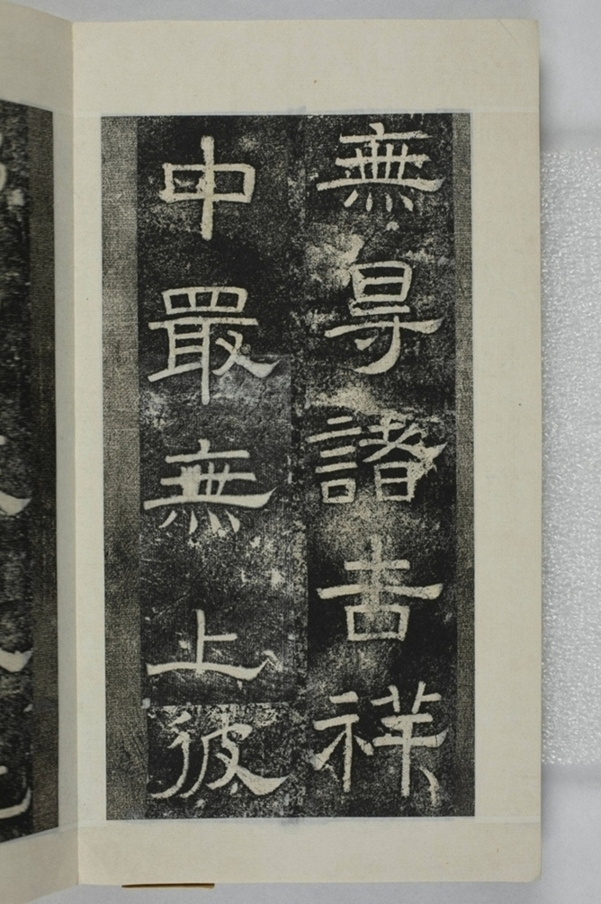 無㝵諸吉祥
中最無上彼